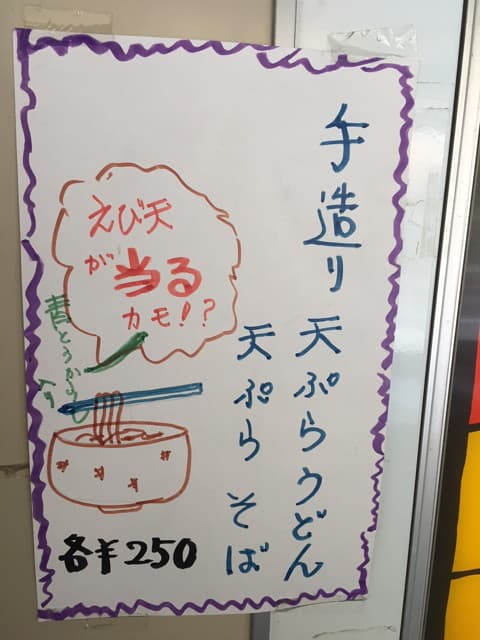 手造り 天ぷらうどん
天ぷら そば
えび天
が当る
カモ!?
青とうがらし
入り
各¥250